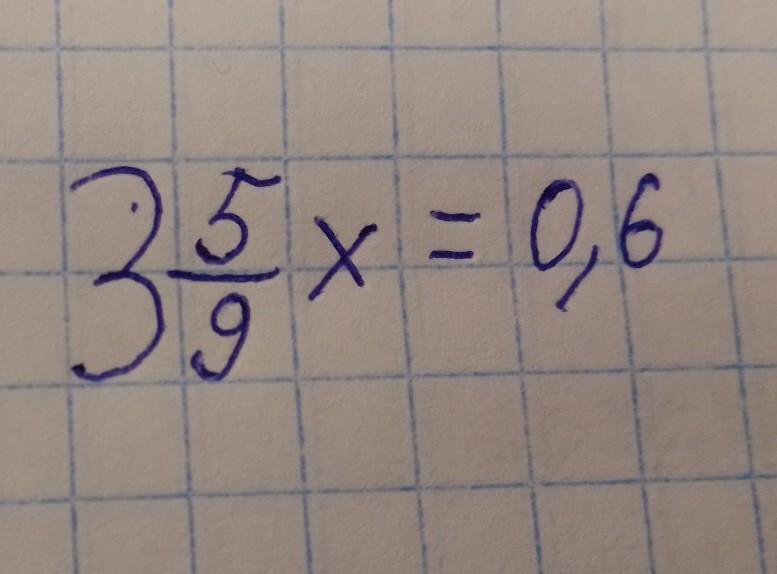 3 5/9 x = 0,6